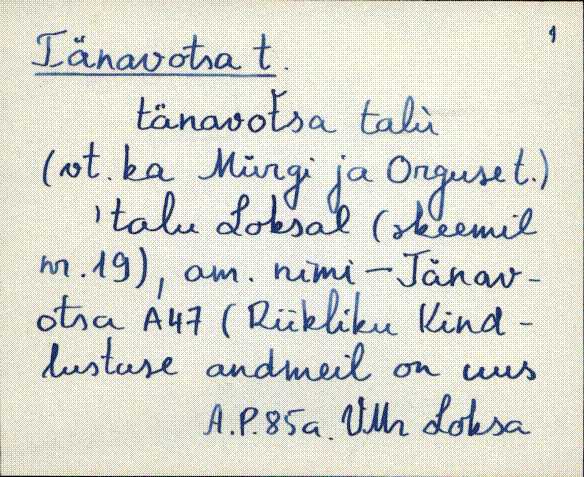 1
Tänavotsa t.
tänavotsa talù
(vt. ka Mürgi ja Orguse t.)
'talu Loksal (skeemil
nr. 19), am. nimi – Tänav-
otsa A47 (Riikliku Kind-
lustuse andmeil on uus
A.P. 85a. VMr Loksa